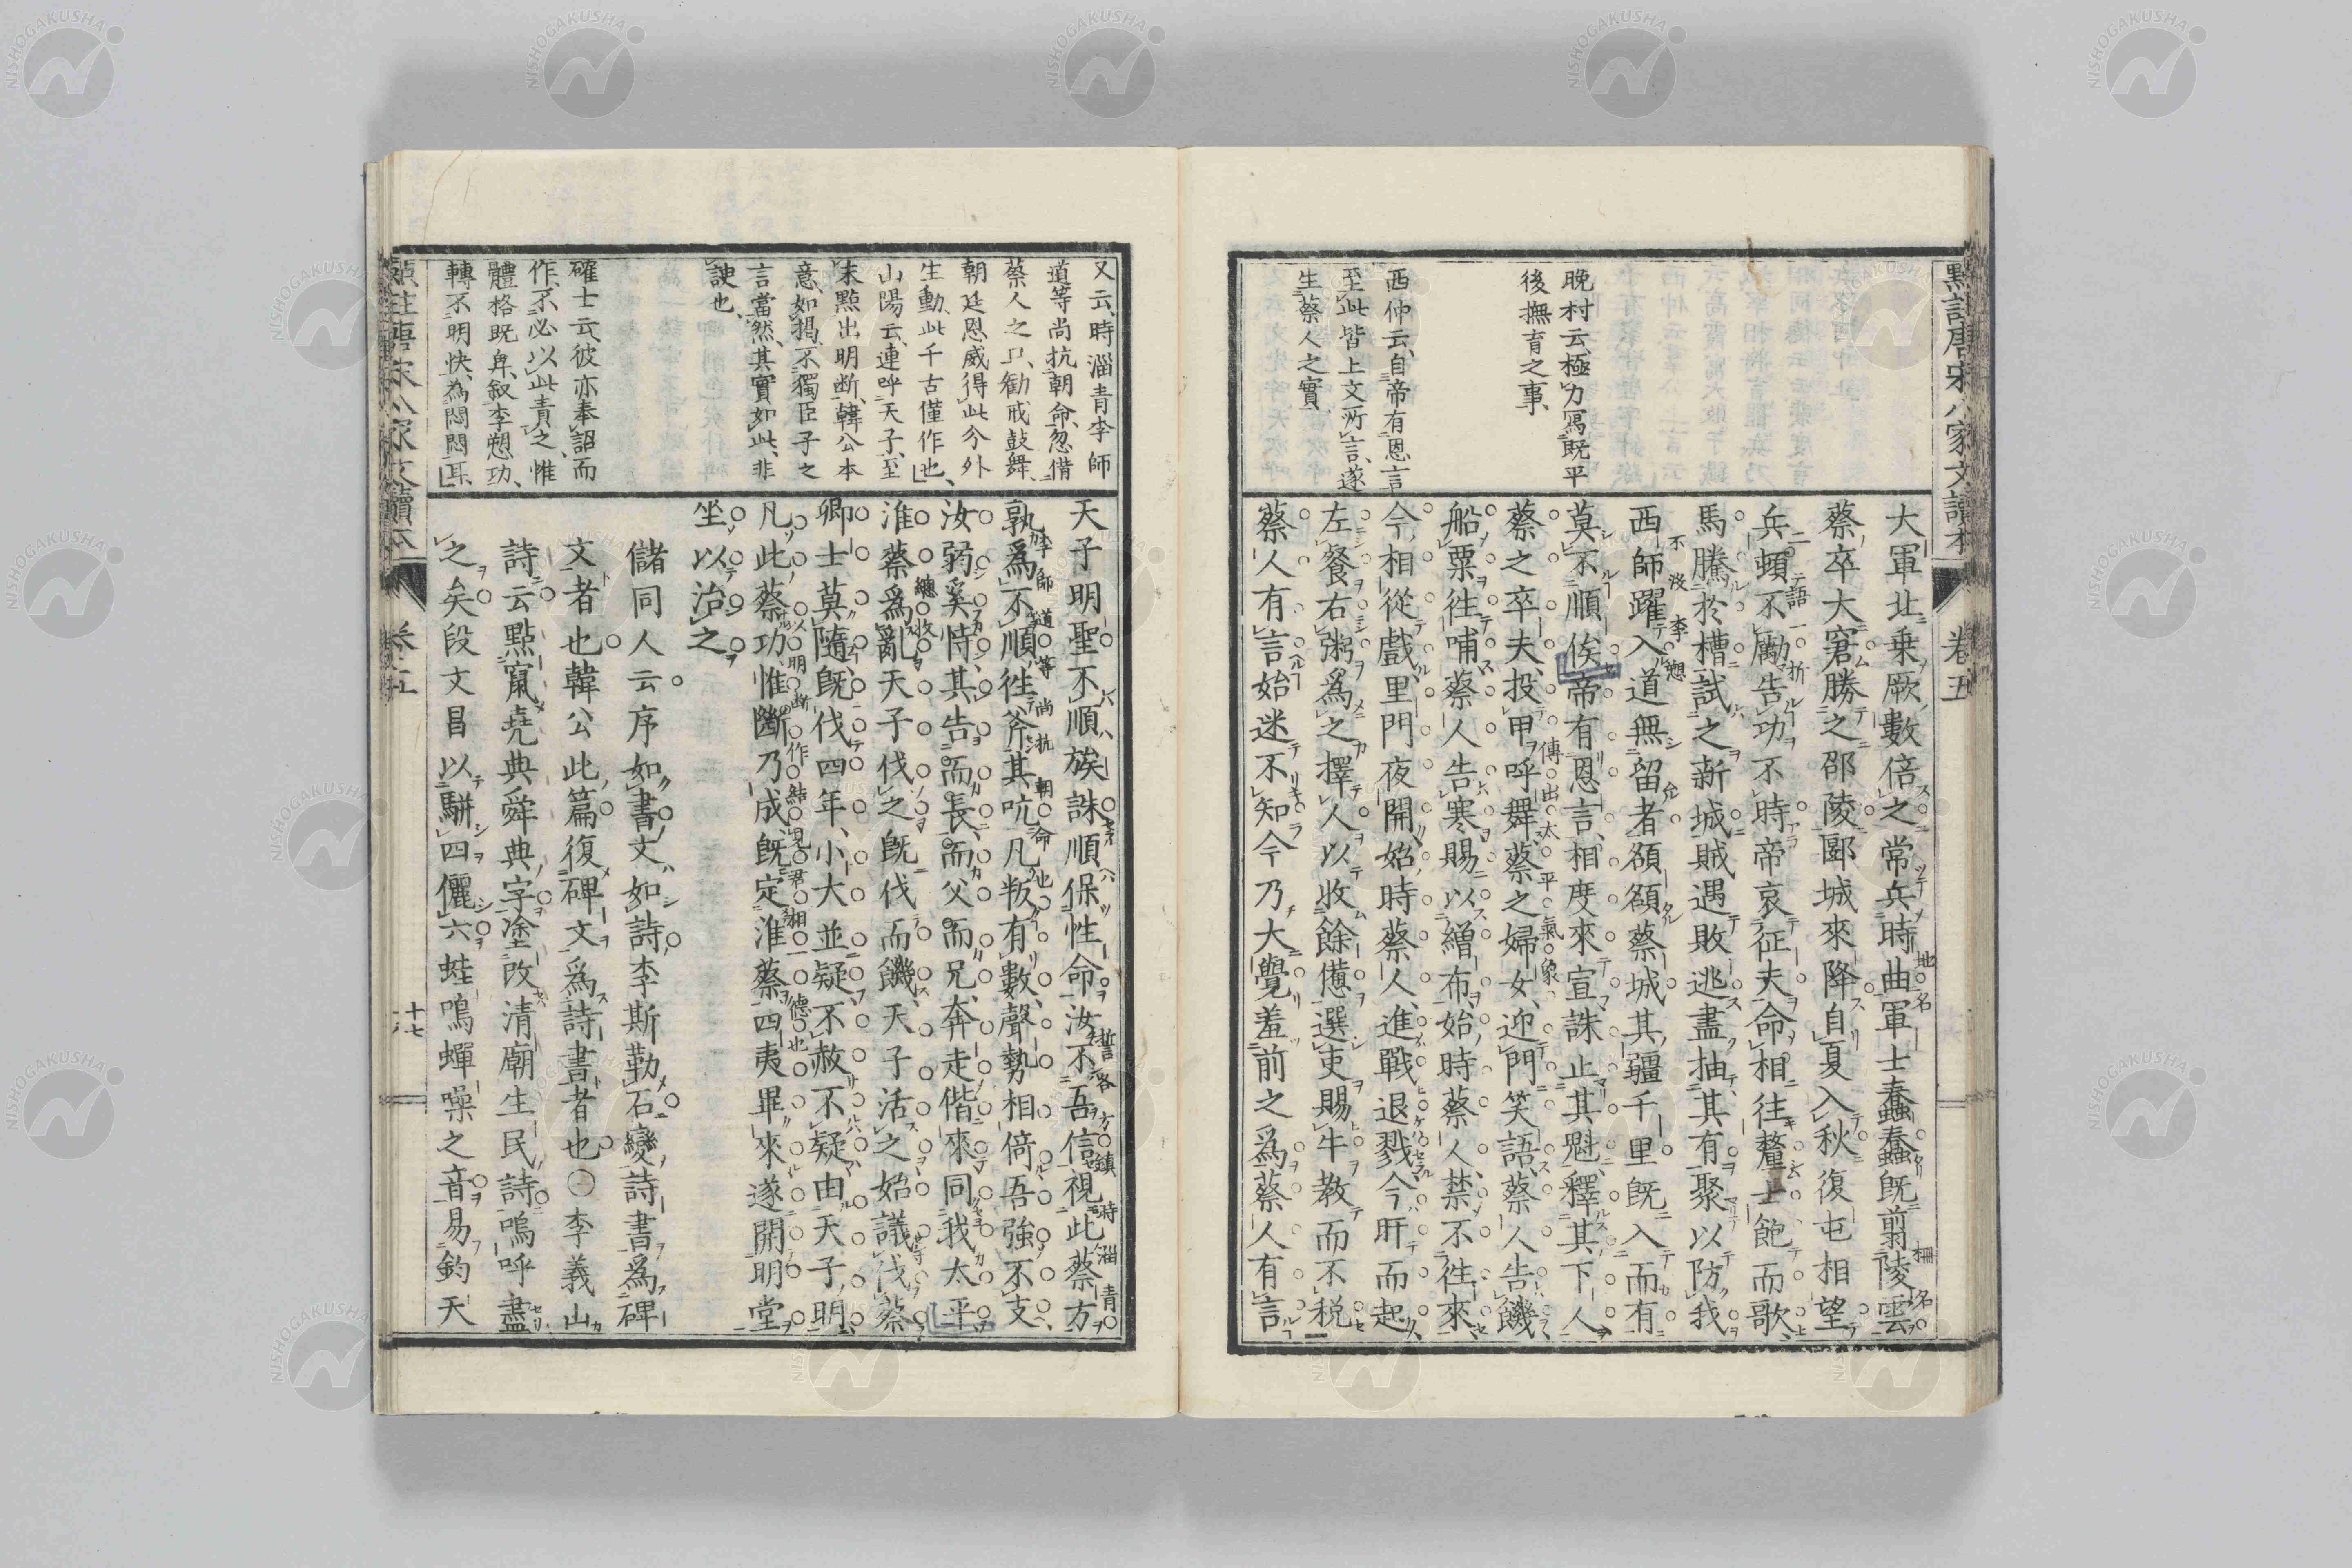 大軍北乗厥數倍之常兵時曲軍士蠢蠢既翦陵雲
蔡卒大窘勝之邵陵郾城來降自夏入秋復屯相望
兵頓不勵告功不時帝哀征夫命相往釐士飽而歌
馬騰於槽試之新城賊遇敗逃盡抽其有聚以防我
西師躍入道無留者頟頟蔡城其疆千里既入而有
莫不順俟帝有恩言相度來宣誅止其魁釋其下人
蔡之卒夫投甲呼舞蔡之婦女迎門笑語蔡人告饑
船粟徃哺蔡人告寒賜以繒布始時蔡人禁不徃來
今相從戲里門夜開始時蔡人進戰退戮今旰而起
左餐右粥爲之擇人以收餘憊選吏賜牛教而不税
蔡人有言始迷不知今乃大覺羞前之爲蔡人有言
晚村云極力寫既平
後撫育之事
西仲云自帝有恩言
至此皆上文所言遂
生蔡人之實
地名
柵名
不没李愬
傳出太平氣象
卷五
天子明聖不順族誅順保性命汝不吾信視此蔡方
孰爲不順徃斧其吭凡叛有數聲勢相倚吾強不支
汝弱奚恃其告而長而父而兄奔走偕來同我太平
淮蔡爲亂天子伐之既伐而饑天子活之始議伐蔡
卿士莫隨既伐四年小大並疑不赦不疑由天子明
凡此蔡功惟斷乃成既定淮蔡四夷畢來遂開明堂
坐以治之
儲同人云序如書文如詩李斯勒石變詩書爲碑
文者也韓公此篇復碑文爲詩書者也〇李義山
詩云點竄堯典舜典字塗改清廟生民詩嗚呼盡
之矣段文昌以駢四儷六蛙鳴蟬噪之音易鈞天
又云時淄青李師
道等尚抗朝命忽借
蔡人之口勸戒鼓舞
朝廷恩威得此分外
生動此千古僅作也
山陽云連呼天子至
末點出明斷韓公本
意如揭不獨臣子之
言當然其實如此非
諛也
確士云彼亦奉詔而
作不必以此責之惟
體格既卑叙李愬功
轉不明快為悶悶耳
李師道等尚抗朝命也
總收
明断作結見君相一德也
卷五
十七
NISHOGAKUSHA